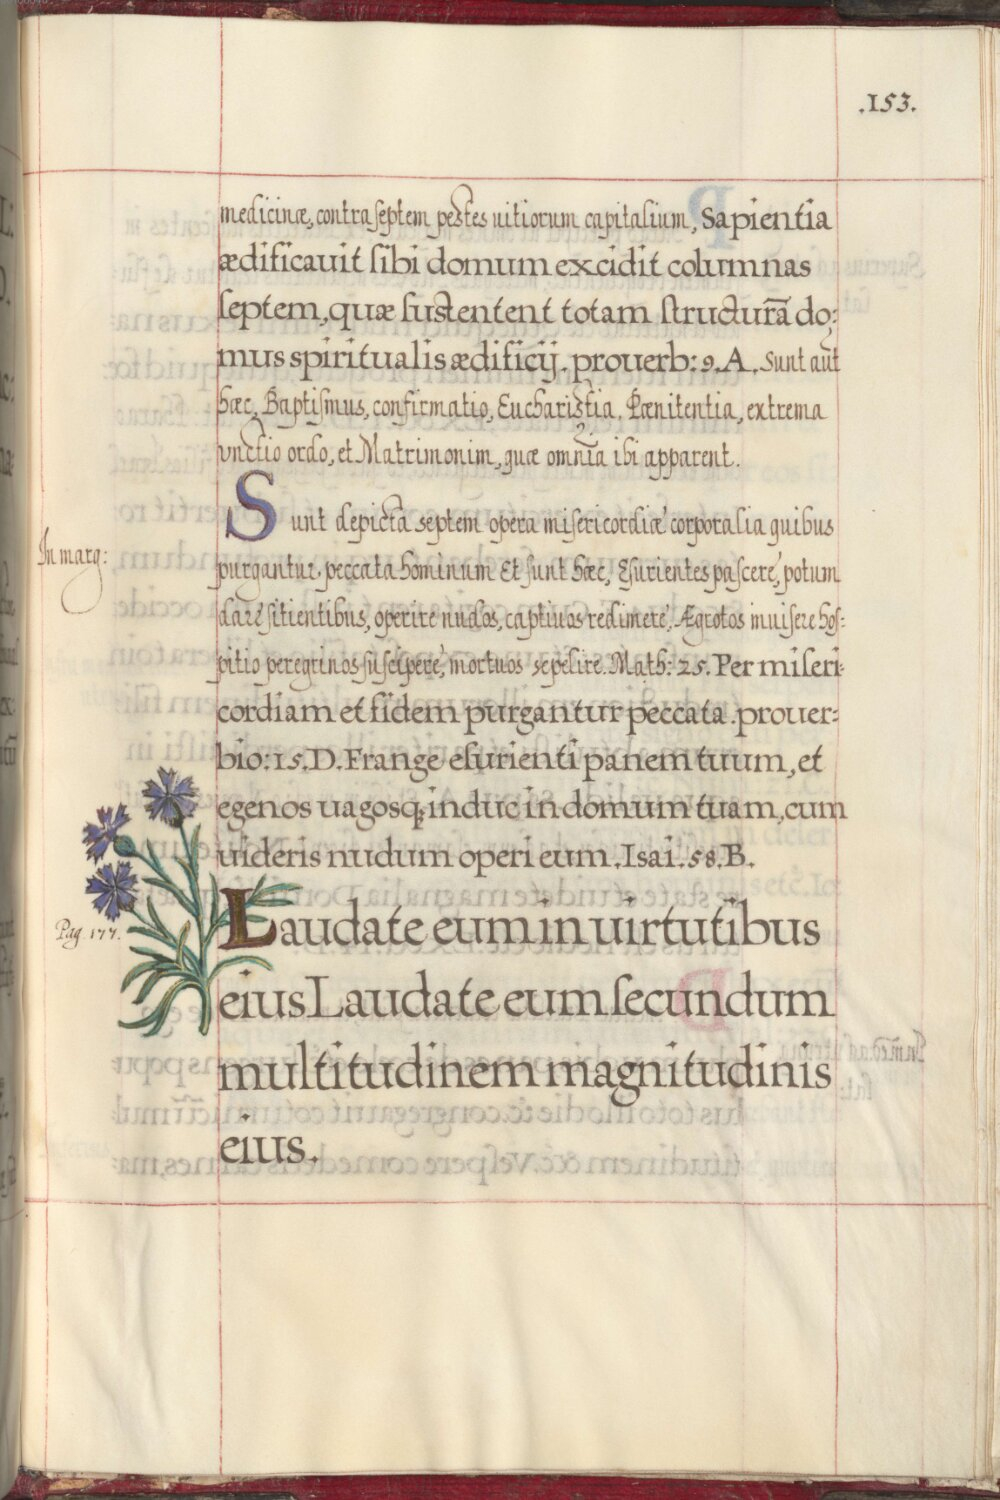 .153.
medicinæ, contra septem pestes uitiorum capitalium, Sapientia
ædificauit sibi domum excidit columnas
septem, quæ sustentent totam structurā do:
mus spiritualis ædificij. prouerb: 9. A. Sunt aūt
hæc, Baptismus, confirmatio, Eucharistia, Pænitentia, extrema
vnctio ordo, et Matrimonim, quæ omnīa ibi apparent.
Sunt depicta septem opera misericordiæ corporalia quibus
In marg:
purgantur peccata hominum Et sunt hæc, Esurientes pascere, potum
dare sitientibus, operire nudos, captiuos redimere, Ægrotos inuisere hos:
pitio peregrinos suscipere, mortuos sepelire. Math: 25. Per miseri:
cordiam et fidem purgantur peccata. prouer:
bio: 15. D. Frange esurienti panem tuum, et
egenos uagosq; induc in domum tuam, cum
uideris nudum operi eum. Isai. 58. B.
Laudate eum in uirtutibus
Pag. 177.
eius Laudate eum secundum
multitudinem magnitudinis
eius.